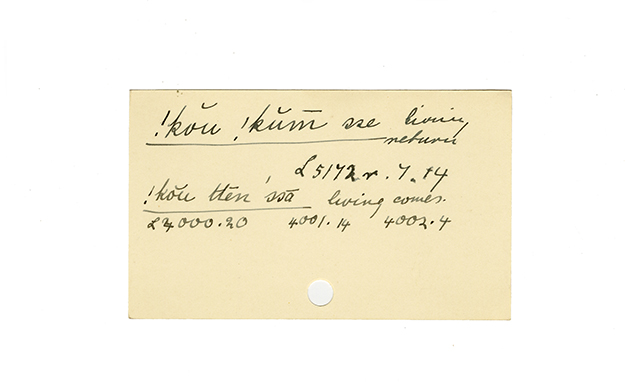 !kŏu !kŭm̄ sse living
return
L 5172 r. 7. 14
!kŏu ttĕn ssā living comes.
L 4000.20 4001.14 4002.4